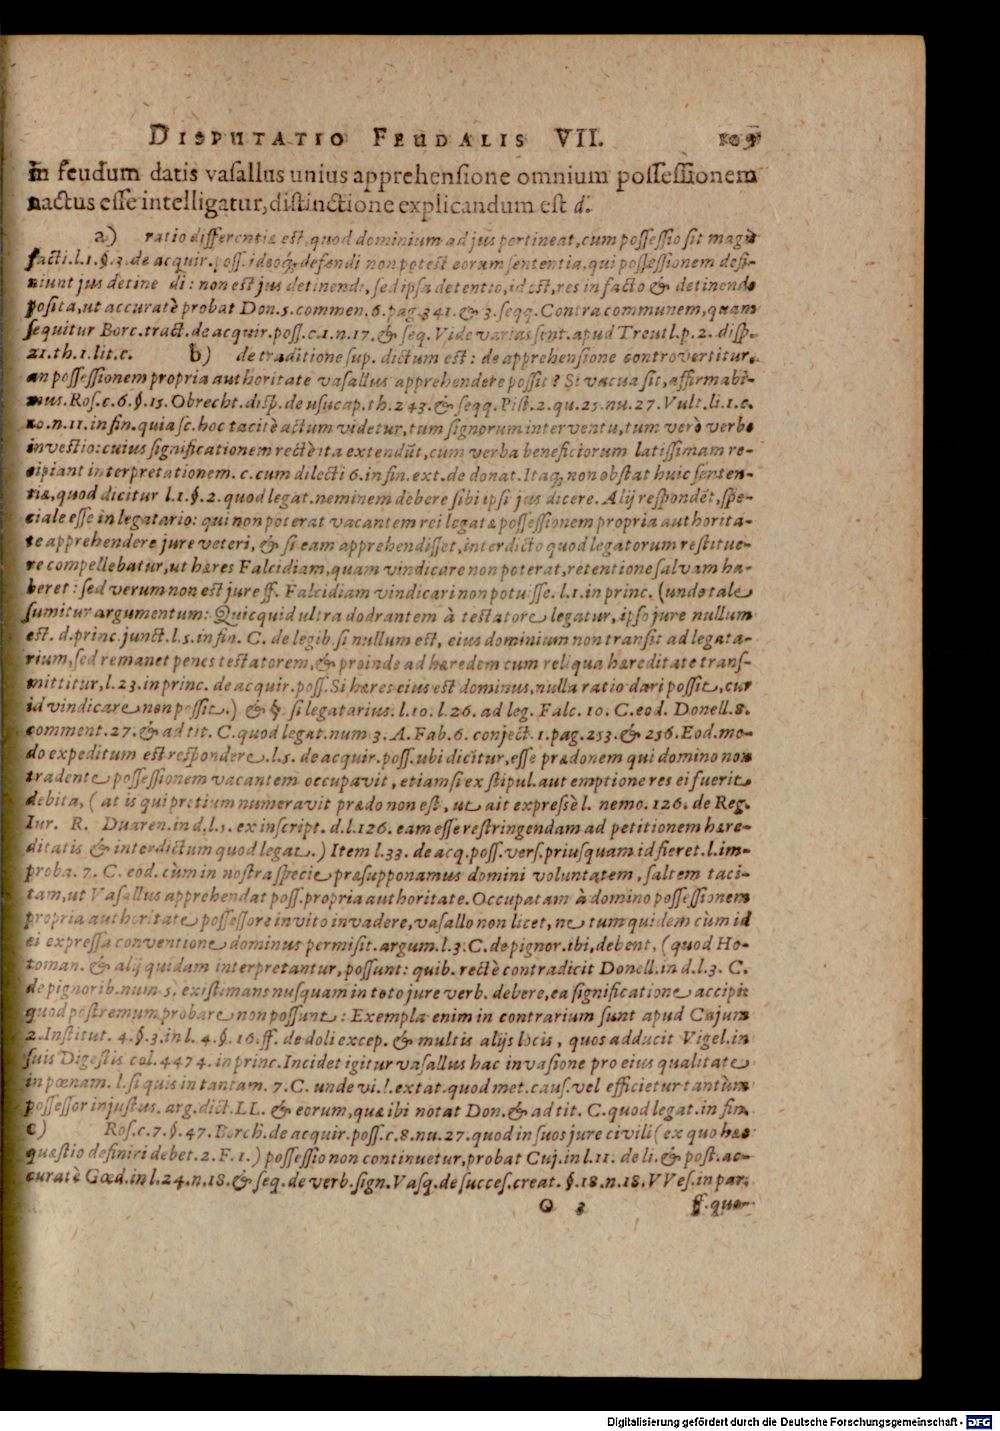 DISPUTATIO FEUDALIS VII. 109
in feudum datis vasallus unius apprehensione omnium possessionem
nactus esse intelligatur, distinctione explicandum est d.
a) ratio differentiæ est, quod dominium ad jus pertineat, cum possessio sit magis
facti. l. 1. §. 3. de acquir. poss. ideoq́; defendi non potest eorum sententia, qui possessionem defi-
niunt jus detinendi: non est jus detinendi, sed ipsa detentio, id est, res in facto & detinendo
posita, ut accuratè probat Don. 5. commen. 6. pag. 341. & 3. seqq. Contra communem, quam
sequitur Borc. tract. de acquir. poss. c. 1. n. 17. & seq. Vide varias sent. apud Treutl. p. 2. disp.
21. th. 1. lit. c. b) de traditione sup. dictum est: de apprehensione controvertitur,
an possessionem propria authoritate vasallus apprehendere possit? Si vacua sit, affirmabi-
mus. Ros. c. 6. §. 15. Obrecht. disp. de usucap. th. 243. & seqq. Pist. 2. qu. 25. nu. 27. Vult. li. 1. c.
10. n. 11. in fin. quia sc. hoc tacitè actum videtur, tum signorum interventu, tum verò verbo
investio: cuius significationem rectè ita extendūt, cum verba beneficiorum latissimam re-
cipiant interpretationem. c. cum dilecti 6. in fin. ext. de donat. Itaq́; non obstat huic senten-
tiæ, quod dicitur l. 1. §. 2. quod legat. neminem debere sibi ipsi jus dicere. Alij respondēt, spe-
ciale esse in legatario: qui non poterat vacantem rei legatæ possessionem propria authorita-
te apprehendere jure veteri, & si eam apprehendisset, interdicto quod legatorum restitue-
re compellebatur, ut hæres Falcidiam, quam vindicare non poterat, retentione salvam ha-
beret: sed verum non est jure ff. Falcidiam vindicari non potuisse. l. 1. in princ. (unde tale
sumitur argumentum: Quicquid ultra dodrantem à testatore legatur, ipso jure nullum
est. d. princ. junct. l. 5. in fin. C. de legib. si nullum est, eius dominium non transit ad legata-
rium, sed remanet penes testatorem, & proinde ad hæredem cum reliqua hæreditate trans-
mittitur, l. 23. in princ. de acquir. poss. Si hæres eius est dominus, nulla ratio dari possit, cur
id vindicare non possit.) & §. si legatarius. l. 10. l. 26. ad leg. Falc. 10. C. eod. Donell. 8.
comment. 27. & ad tit. C. quod legat. num 3. A. Fab. 6. conject. 1. pag. 253. & 256. Eod. mo-
do expeditum est respondere. l. 5. de acquir. poss. ubi dicitur, esse prædonem qui domino non
tradente possessionem vacantem occupavit, etiamsi ex stipul. aut emptione res ei fuerit
debita, (at is qui pretium numeravit prædo non est, ut ait expressè l. nemo. 126. de Reg.
Iur. R. Duaren. in d. l. 5. ex inscript. d. l. 126. eam esse restringendam ad petitionem hære-
ditatis & interdictum quod legat.) Item l. 33. de acq. poss. vers. priusquam id fieret. l. im-
proba. 7. C. eod. cùm in nostra specie præsupponamus domini voluntatem, saltem taci-
tam, ut Vasallus apprehendat poss. propria authoritate. Occupatam à domino possessionem
propria authoritate possessore invito invadere, vasallo non licet, ne tum quidem cùm id
ei expressa conventione dominus permisit. argum. l. 3. C. de pignor. ibi, debent, (quod Ho-
toman. & alij quidam interpretantur, possunt: quib. rectè contradicit Donell. in d. l. 3. C.
de pignorib. num 5. existimans nusquam in toto jure verb. debere, ea significatione accipi:
quod postremum probare non possunt: Exempla enim in contrarium sunt apud Cujum
2. Institut. 4. §. 3. in l. 4. §. 16. ff. de doli excep. & multis alijs locis, quos adducit Vigel. in
suis Digestis col. 4474. in princ. Incidet igitur vasallus hac invasione pro eius qualitate
in pœnam. l. si quis in tantam. 7. C. unde vi. l. extat. quod met. caus. vel efficietur tantùm
possessor injustus. arg. dict. LL. & eorum, quæ ibi notat Don. & ad tit. C. quod legat. in fin.
c) Ros. c. 7. §. 47. Borch. de acquir. poss. c. 8. nu. 27. quod in suos jure civili (ex quo hæc
quæstio definiri debet. 2. F. 1.) possessio non continuetur, probat Cuj. in l. 11. de li. & post. ac-
curatè Gœd. in l. 24. n. 18. & seq. de verb. sign. Vasq. de succes. creat. §. 18. n. 18. VVes. in par.
O 3 ff. quo-
Digitalisierung gefördert durch die Deutsche Forschungsgemeinschaft - DFG